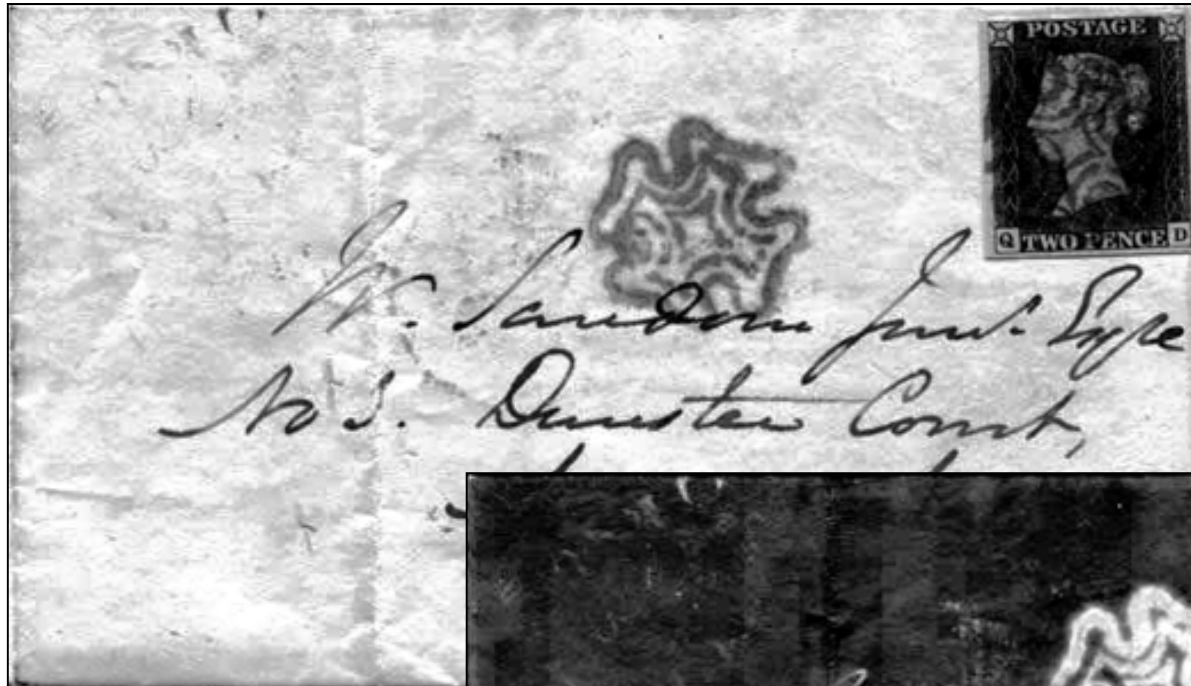 POSTAGE
Q TWO PENCE D
W. Sansom Junr. Esqre
No 3. Dunster Court,